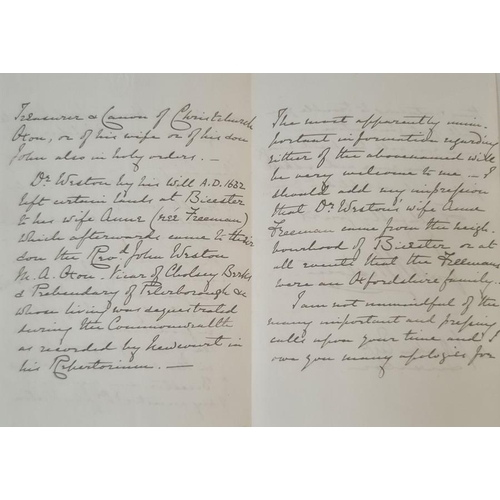 Treasurer & Canon of Christchurch
Oxon, or of his wife or of his son
John also in holy orders. —
Dr Weston by his Will A.D. 1632
left certain lands at Bicester
to his wife Anne (née Freeman)
which afterwards came to their
son the Revd. John Weston
M.A. Oxon. Vicar of Cholsey Berks
& Prebendary of Peterborough &c
whose living was sequestrated
during the Commonwealth
as recorded by Newcourt in
his Repertorium. —
The most apparently unim-
portant information regarding
either of the abovenamed will
be very welcome to me — I
should add my impression
that Dr Weston's wife Anne
Freeman came from the neigh-
bourhood of Bicester or at
all events that the Freemans
were an Oxfordshire family.
I am not unmindful of the
many important and pressing
calls upon your time and I
owe you many apologies for